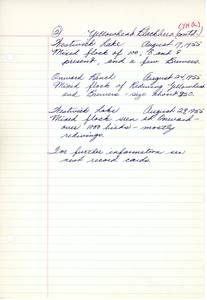 (YHBL)
② Yellowhead Blackbird (contd.)
Westwick Lake August 17, 1955
Mixed flock of 100, R and Y
present, and a few Brewers.
Onward Ranch August 24, 1955
Mixed flock of Redwing Yellowhead
and Brewers - size about 850.
Westwick Lake August 28, 1955
Mixed flock seen at Onward -
over 1000 birds - mostly
redwings.
For further information see
nest record cards.